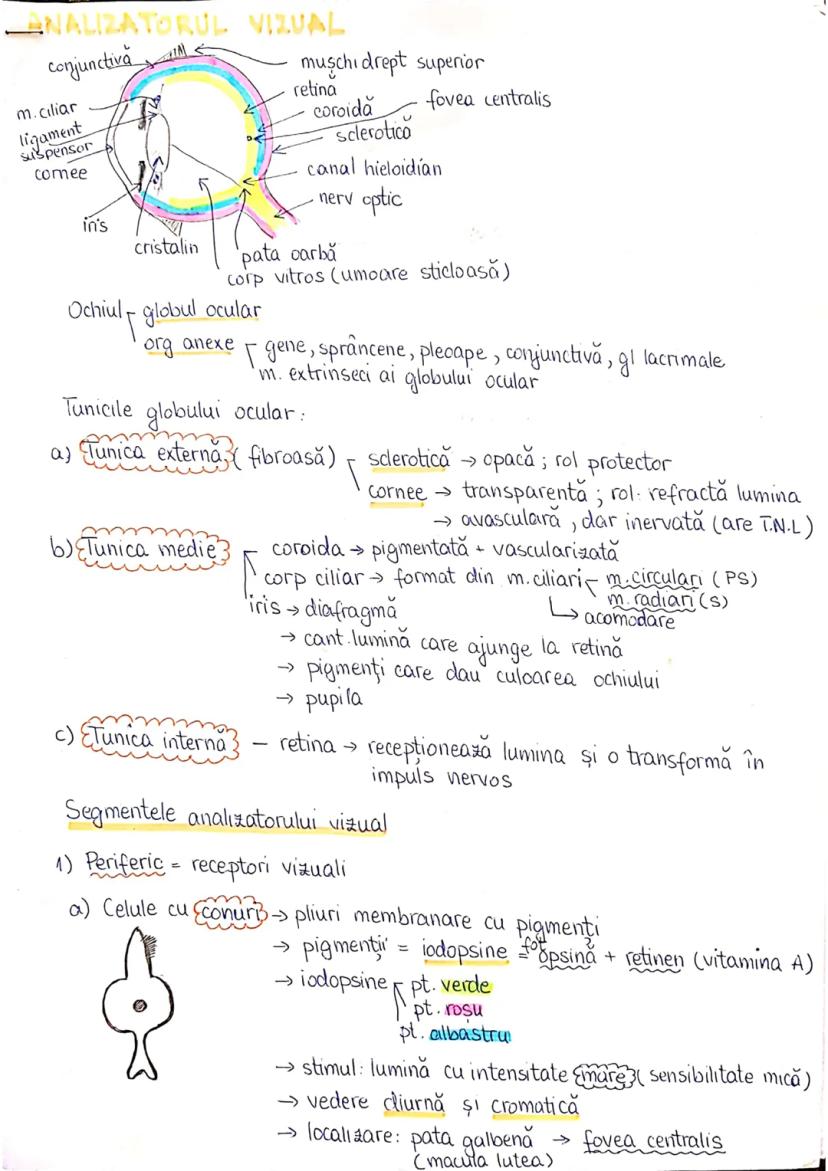 ANALIZATORUL VIZUAL
conjunctivă
mușchi drept superior
retină
fovea centralis
m. ciliar
coroidă
ligament
suspensor
sclerotică
cornee
canal hieloidian
nerv optic
iris
cristalin
pata oarbă
corp vitros (umoare sticloasă)
Ochiul globul ocular
org anexe gene, sprâncene, pleoape, conjunctivă, gl lacrimale
m. extrinseci ai globului ocular
Tunicile globului ocular:
a) Tunica externă (fibroasă) sclerotică → opacă; rol protector
cornee → transparentă; rol: refractă lumina
→ avasculară, dar inervată (are T.N.L)
b) Tunica medie coroida → pigmentată + vascularizată
corp ciliar → format din m. ciliari m. circulari (PS)
m. radiari (S)
→ acomodare
iris → diafragmă
→ cant. lumină care ajunge la retină
→ pigmenți care dau culoarea ochiului
→ pupila
c) Tunica internă – retina → recepționează lumina și o transformă în
impuls nervos
Segmentele analizatorului vizual
1) Periferic = receptori vizuali
a) Celule cu conuri → pliuri membranare cu pigmenți
→ pigmenții = iodopsine = fotopsină + retinen (vitamina A)
→ iodopsine pt. verde
pt. roșu
pt. albastru
→ stimul: lumină cu intensitate mare (sensibilitate mică)
→ vedere diurnă și cromatică
→ localizare: pata galbenă → fovea centralis
(macula lutea)